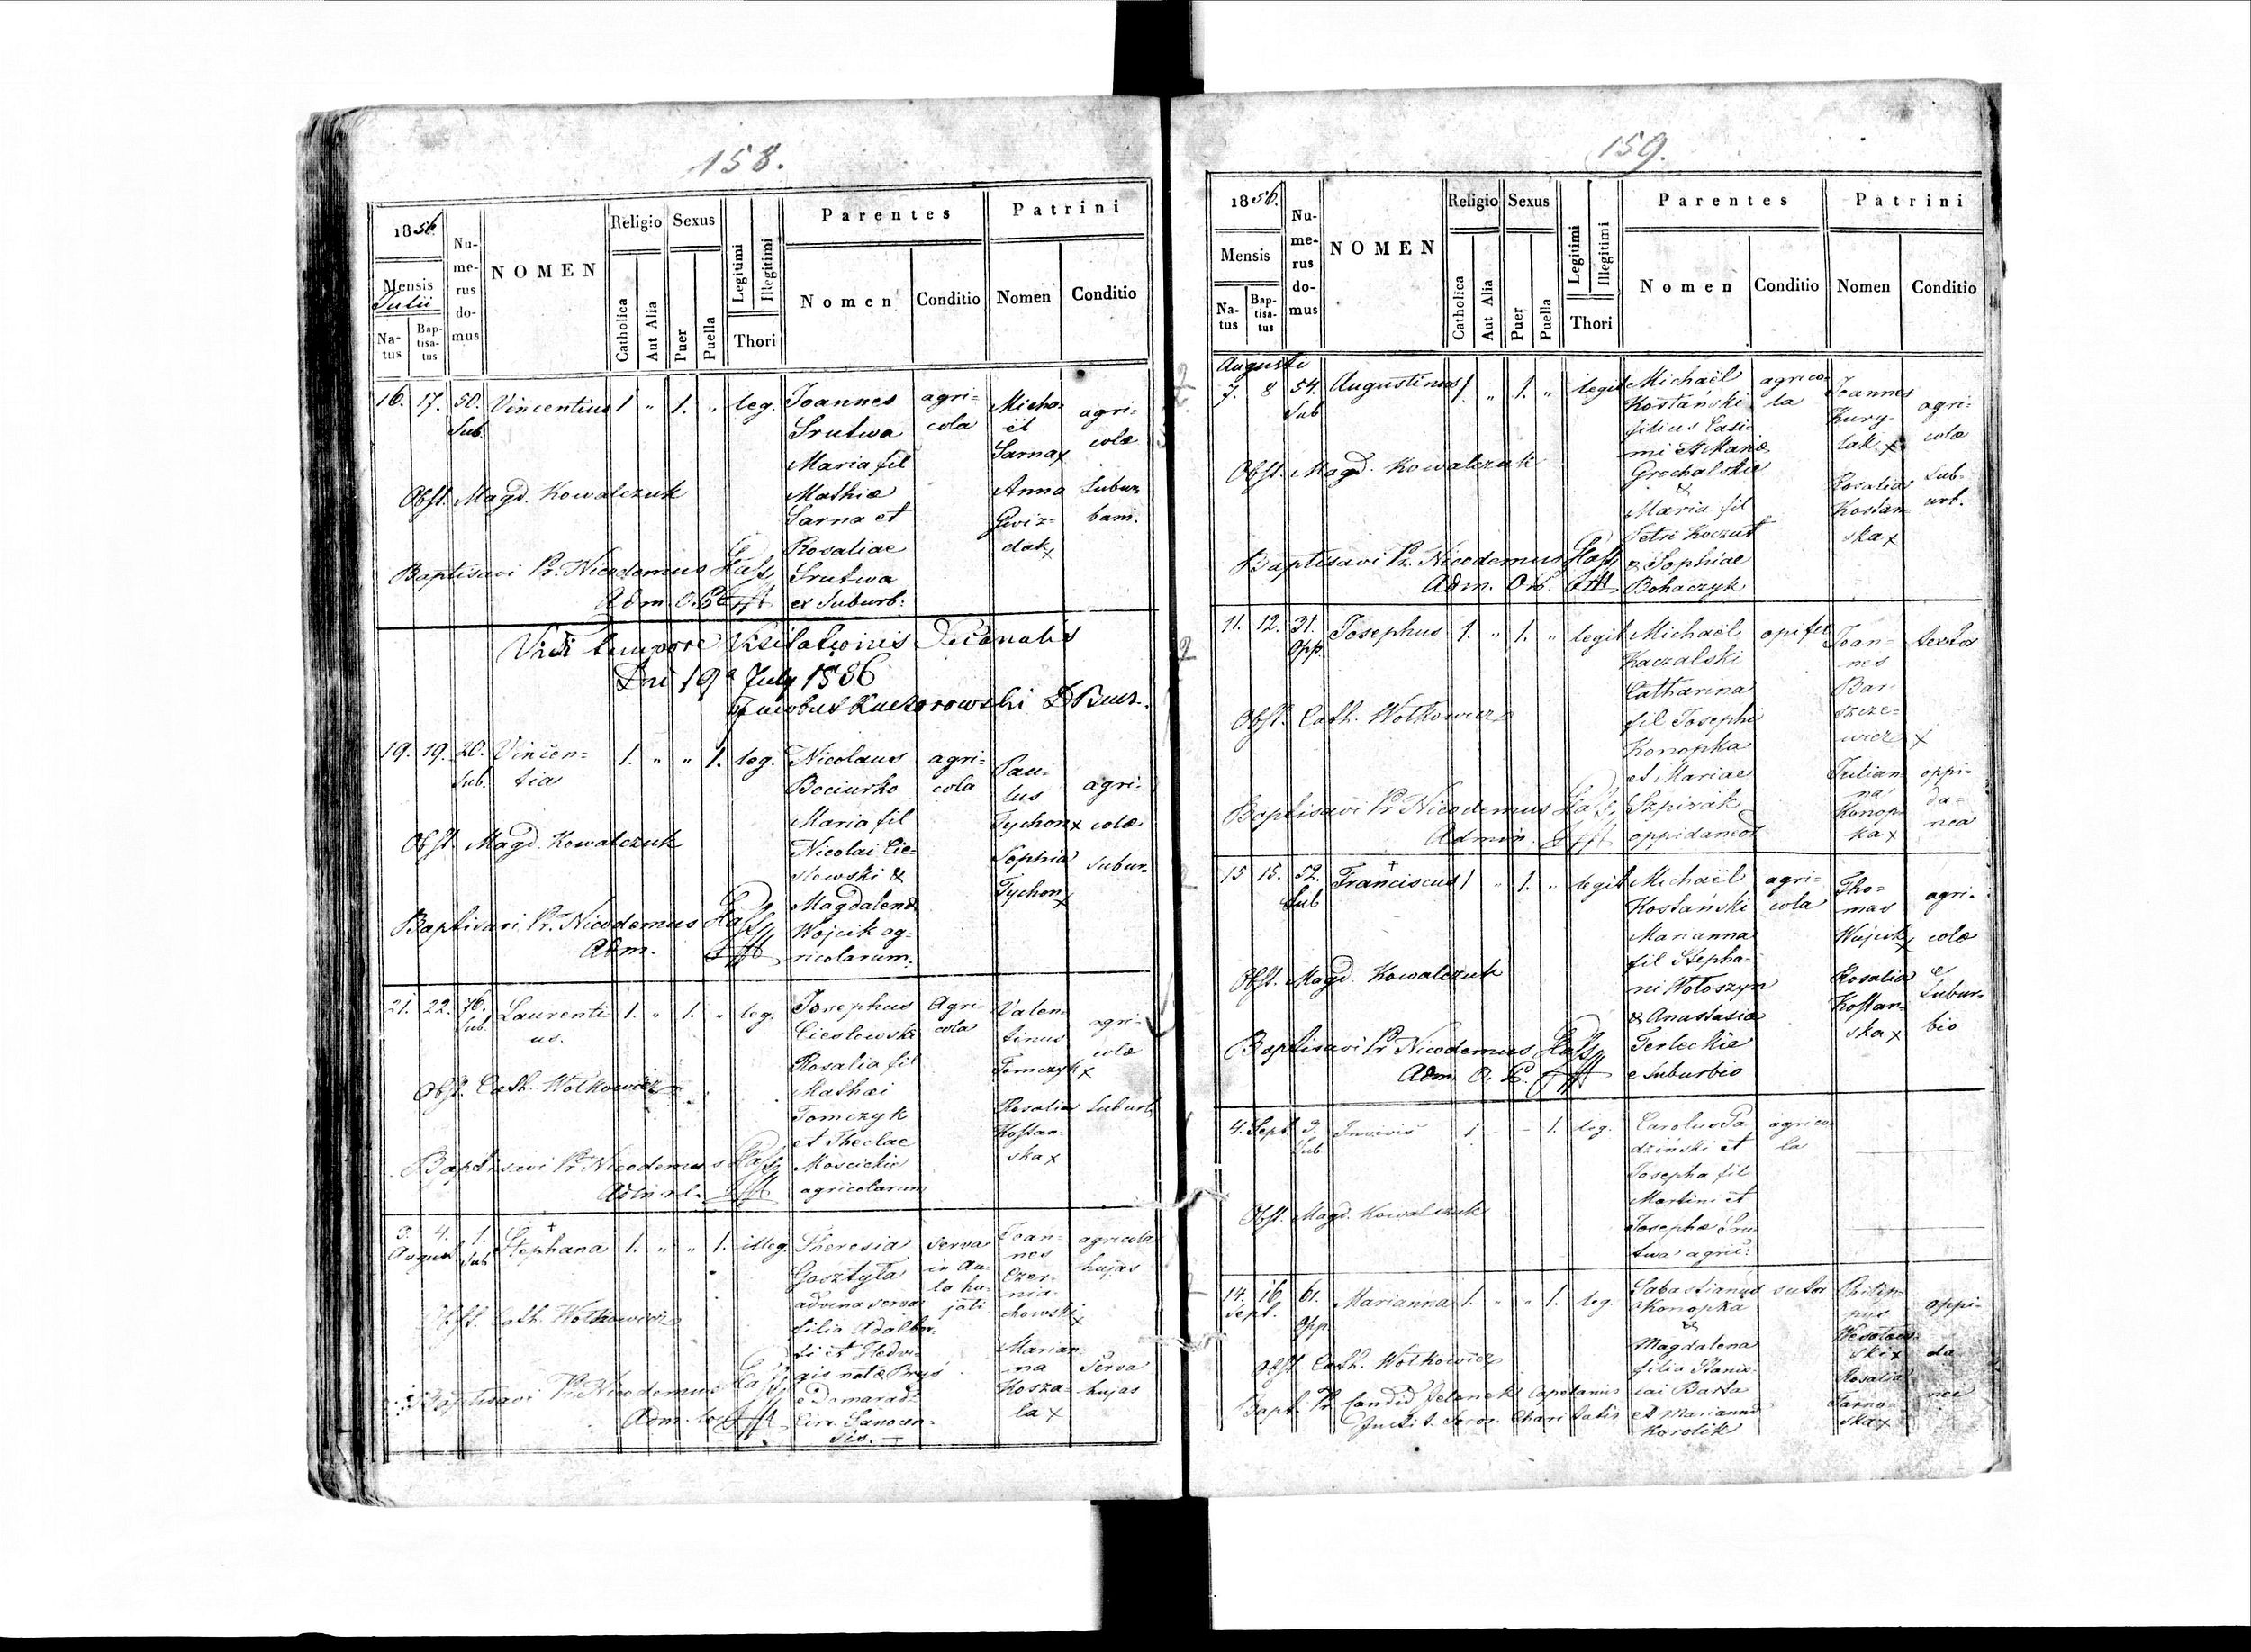 158.
1856.
Mensis
Julii
Na-
tus
Bap-
tisa-
tus
Nu-
me-
rus
do-
mus
NOMEN
Religio
Catholica
Aut Alia
Sexus
Puer
Puella
Legitimi
Illegitimi
Thori
Parentes
Nomen
Conditio
Patrini
Nomen
Conditio
16. 17. 50. Vincentius 1 " 1. " leg.
Sub.
Joannes
Srutwa
Maria fil
Mathiæ
Sarna et
Rosaliae
Srutwa
ex Suburb:
agri=
cola
Micha-
ël
Sarna x
Anna
Gwiz=
dak x
agri=
colæ
Subur=
bani.
Obst. Magd. Kowalczuk
Baptisavi Pr. Nicodemus
Adm.
Vidi tempore Visitationis Decanalis
Dni 19a July 1856
19. 19. 20. Vincen= 1. " " 1. leg.
Sub. tia
Nicolaus
Bociurko
Maria fil
Nicolai Cie=
slowski &
Magdalenæ
Wojcik ag=
ricolarum.
agri=
cola
Pau-
lus
Tychon x
Sophia
Tychon x
agri=
colæ
Subur=
Obst. Magd. Kowalczuk
Baptisavi Pr. Nicodemus
Adm.
21. 22. 76. Laurenti= 1. " 1. " leg.
Sub. us.
Josephus
Cieslewski
Rosalia fil
Mathæi
Tomczyk
et Theclae
Moscickie
agricolarum
Agri
cola
Valen
tinus
Tomczyk x
Rosalia
Kostan=
ska x
agri=
colæ
Suburb
Obst. Cath. Wolkowicz
Baptisavi Pr. Nicodemus
3. 4. 1. Stephana 1. " " 1. illeg.
August Sub
Theresia
Gosztyła
advena serva
filia Adalber=
ti et Hedvi=
gis natæ Bryś
e Domaradz
Circ. Sanocen=
sis.
Serva
in Au=
la hu=
jati
Joan=
nes
Czer=
nia=
chowski x
Marian=
na
Kosza=
la x
agricola
hujas
Serva
hujas
Obst. Cath. Wolkowicz
Baptisavi Pr. Nicodemus
Adm.
159.
1856.
Mensis
Na-
tus
Bap-
tisa-
tus
Nu-
me-
rus
do-
mus
NOMEN
Religio
Catholica
Aut Alia
Sexus
Puer
Puella
Legitimi
Illegitimi
Thori
Parentes
Nomen
Conditio
Patrini
Nomen
Conditio
Augusti
7. 8 54. Augustinus 1. " 1. " legit
Sub
Michaël
Kostański
filius Casi
mi et Mariæ
Grochalskie
&
Maria fil
Petri Koczut
& Sophiae
Bohaczyk
agrico=
la
Joannes
Kury=
lak x
Rosalia
Kostan=
ska x
agri=
colæ
Sub=
urb.
Obst. Magd. Kowalczuk
Baptisavi Pr. Nicodemus
Adm.
11. 12. 31. Josephus 1. " 1. " legit
Opp.
Michaël
Kaczalski
Catharina
fil Josephi
Konopka
et Mariae
Szpirák
oppidaneor
opifex
Joan=
nes
Bar=
szcze=
wicz x
Julian=
na
Konop=
ka x
textor
oppi=
da=
nea
Obst. Cath. Wolkowicz
Baptisavi Pr Nicodemus
Admin.
15 15. 52. Franciscus 1 " 1. " legit
Sub
Michaël
Kostański
Marianna
fil Stepha=
ni Wołoszyn
& Anastasiæ
Terleckie
e Suburbio
agri=
cola
Tho=
mas
Wujcik x
Rosalia
Kostan=
ska x
agri=
colæ
e
Subur=
bio
Obst. Magd. Kowalczuk
Baptisavi Pr Nicodemus
Adm.
4. Sept. 3. 1. - - 1. leg.
Sub
Carolus Pa
dziński et
Josepha fil
Martini et
Josephæ Sru=
twa agric:
agrico=
la
Obst. Magd. Kowalczuk
14. 16 61. Marianna 1. " " 1. leg.
Sept. Opp.
Sabastianus
Konopka
&
Magdalena
filia Stanis=
lai Barta
et Mariannæ
Korolik
sutor
Philip=
pus
Rosalia
Tarno=
ska x
oppi=
da=
nei
Obst. Cath. Wolkowicz
Bapt. Pr Candid Jelenek Capelanus
Instit. Soror. Charitatis